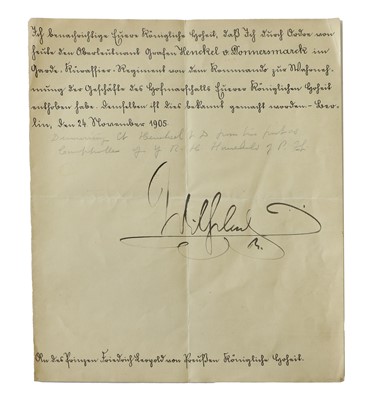 Ich benachrichtige Euere Königliche Hoheit, daß Ich durch Ordre von
heute den Oberleutnant Grafen Henckel v. Donnersmarck im
Garde-Kürassier-Regiment von dem Kommando zur Wahrneh-
mung der Geschäfte des Hofmarschalls Euerer Königlichen Hoheit
enthoben habe. Demselben ist dies bekannt gemacht worden.- Ber-
lin, den 24. November 1905.
Wilhelm
R.
An des Prinzen Friedrich Leopold von Preußen Königliche Hoheit.